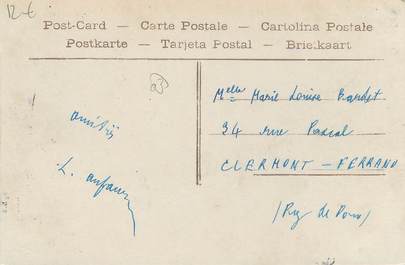 12€
Post-Card — Carte Postale — Cartolina Postale
Postkarte — Tarjeta Postal — Briefkaart
amitiés
L.
Melle Marie Louise Bardet
34 rue Pascal
CLERMONT-FERRAND
(Puy de Dome)